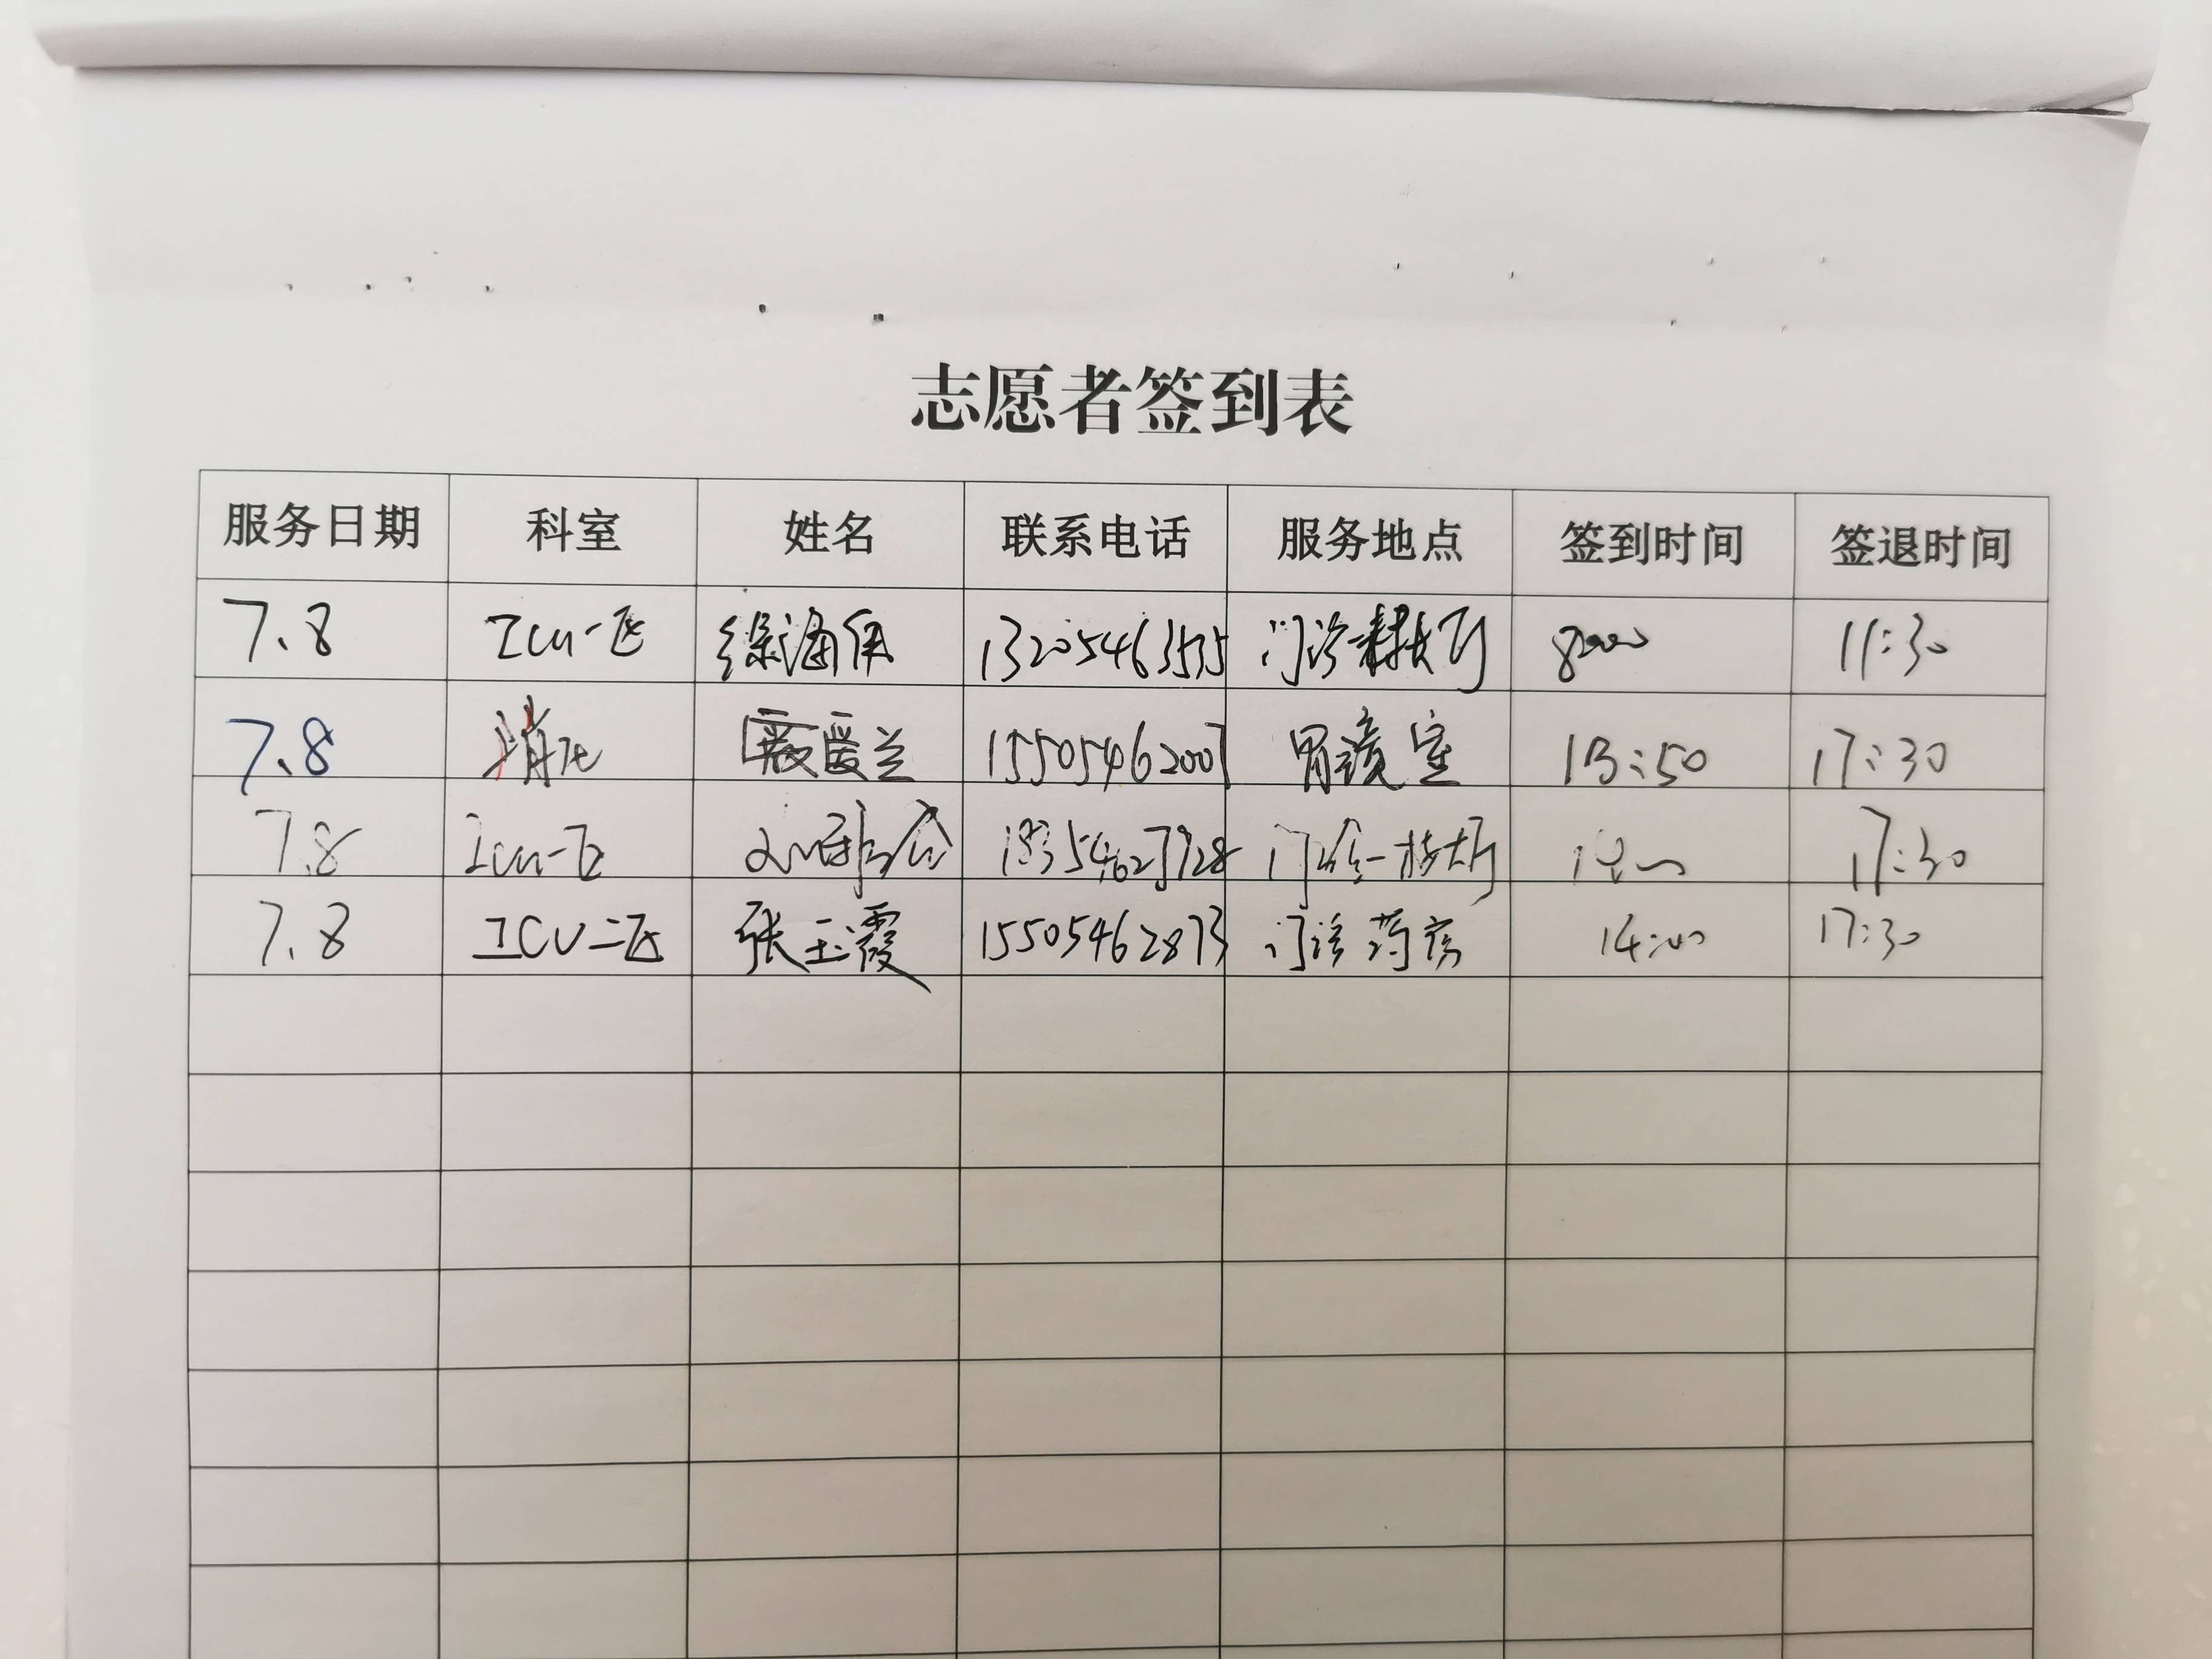 志愿者签到表
服务日期 科室 姓名 联系电话 服务地点 签到时间 签退时间
7.8 ICU一区 13205463535 门诊一楼大厅 8:00 11:30
7.8 消化 爱兰 15505462007 胃镜室 13:50 17:30
7.8 ICU一区 18354627928 门诊一楼大厅 17:30
7.8 ICU二区 张玉霞 15505462873 门诊药房 14:00 17:30